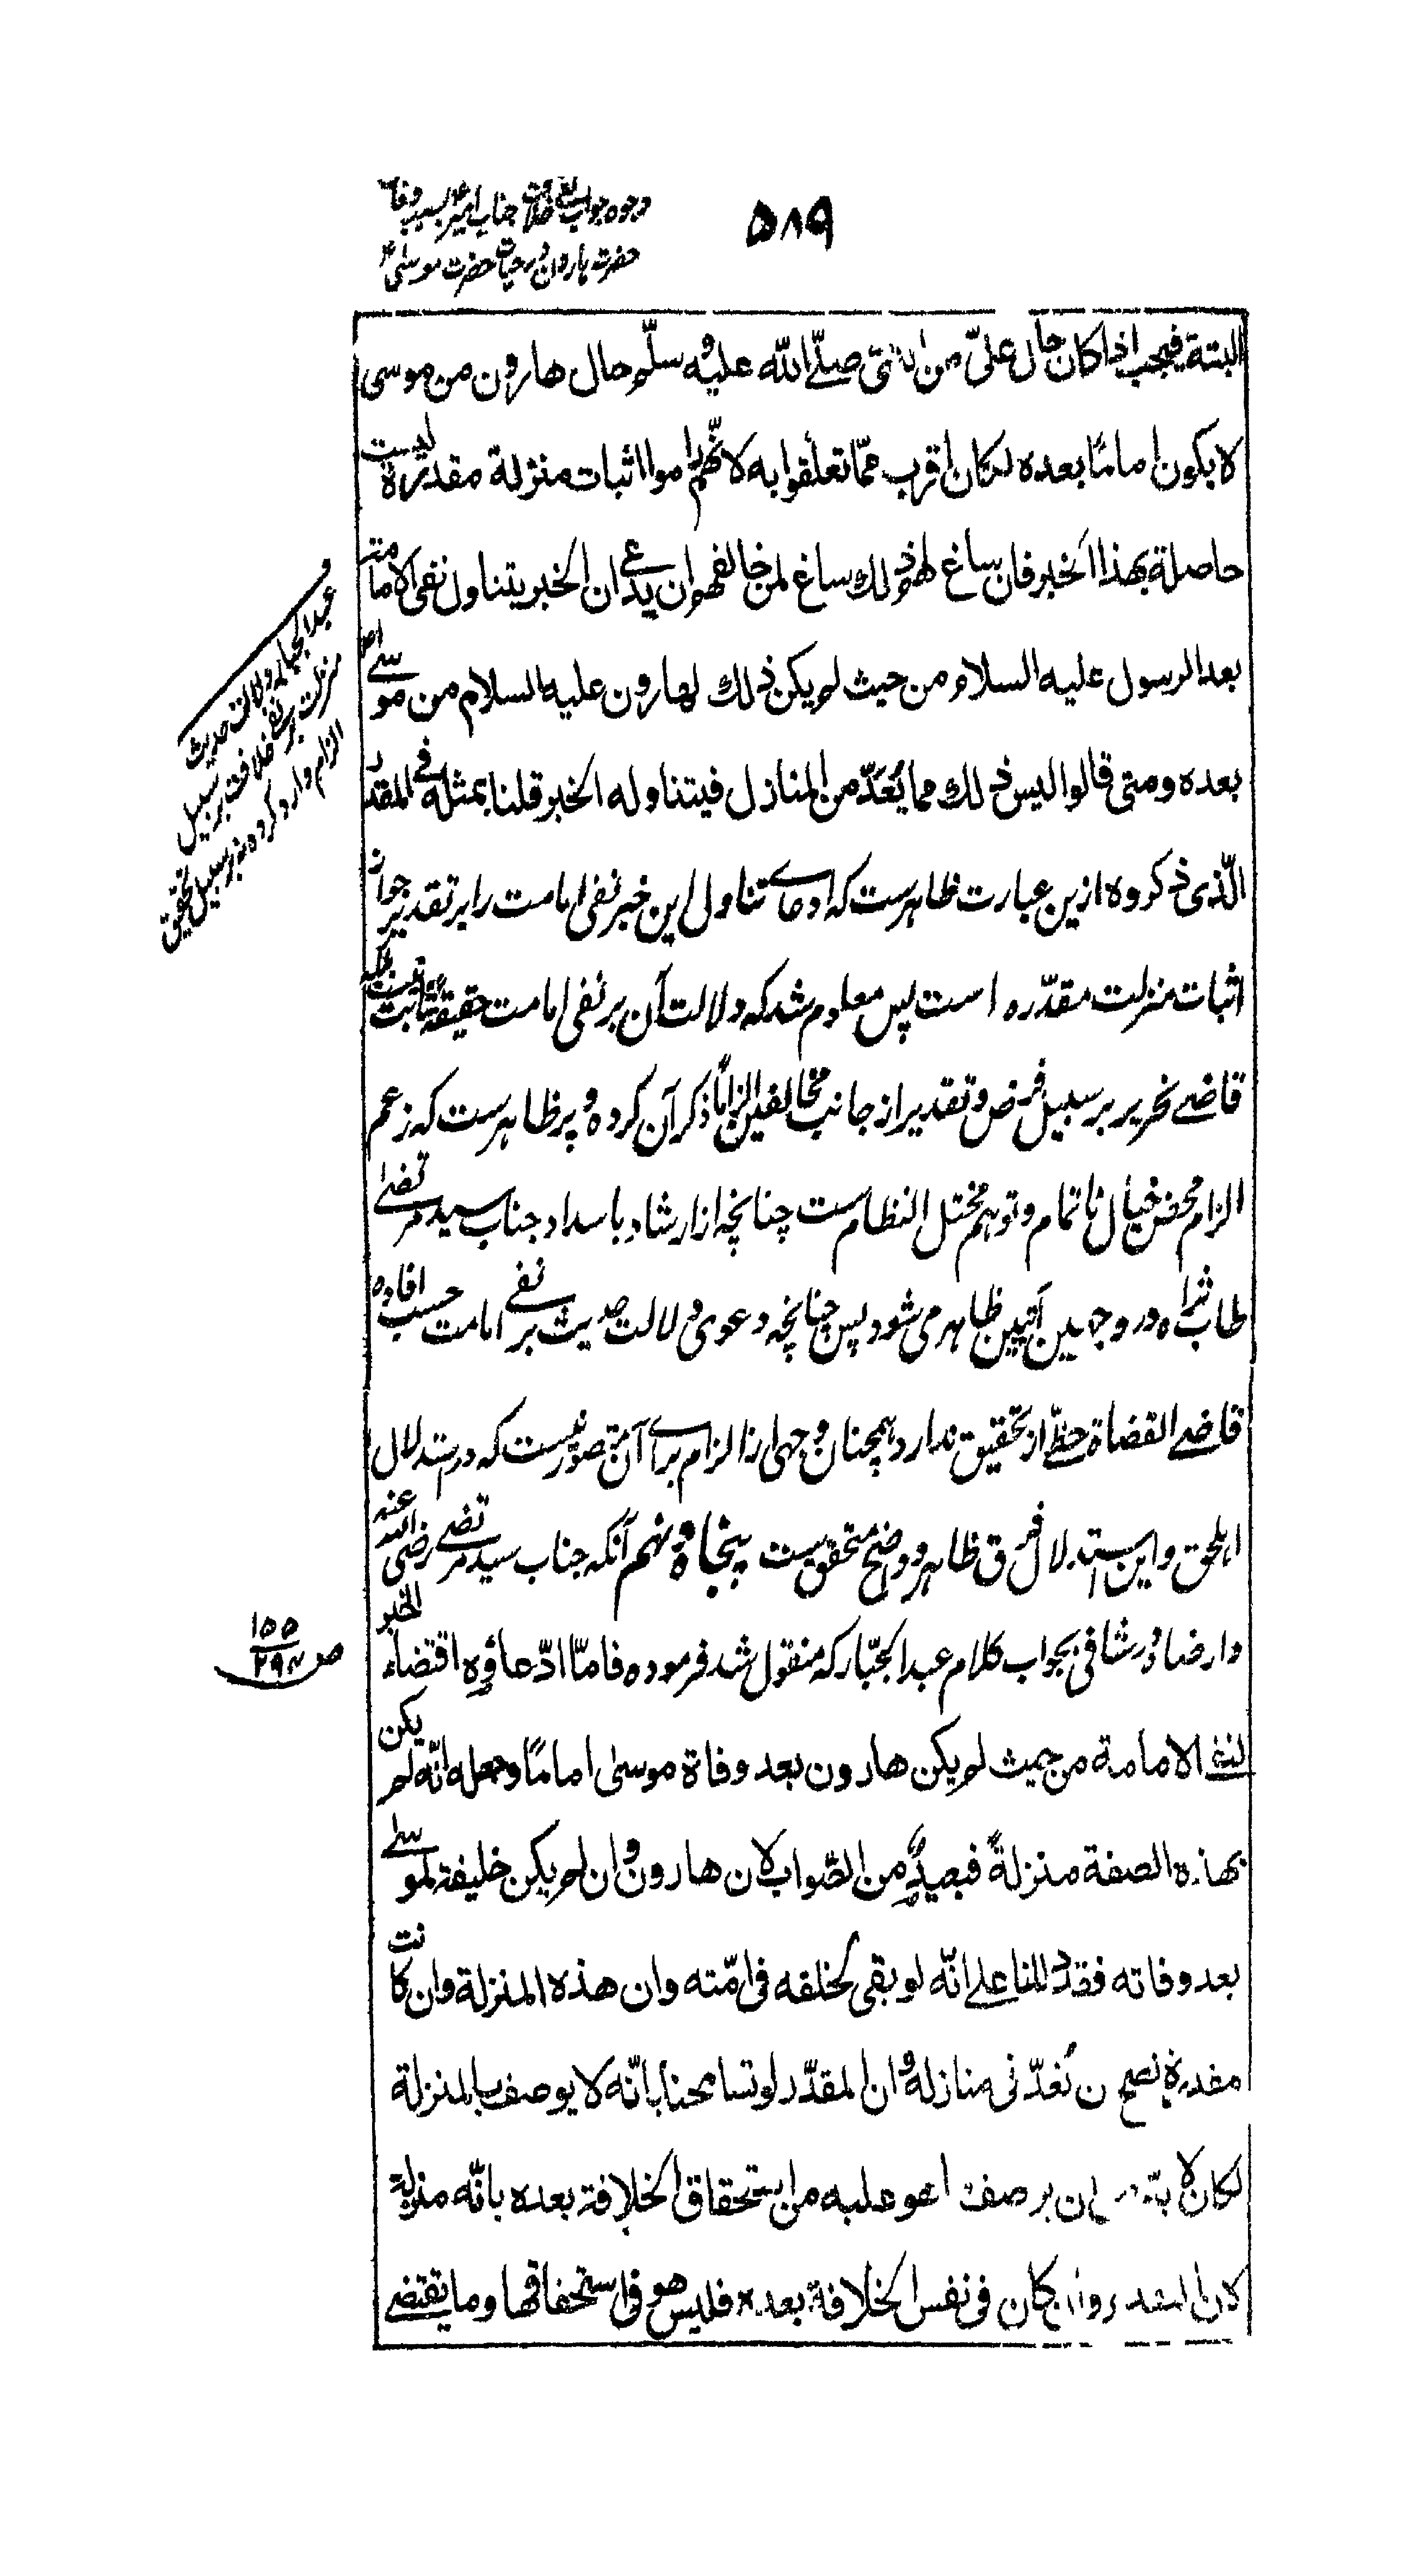 ۵۸۹
وجوه جواب نفی خلافت جناب امیرؑ بسبب وفات
حضرت هارون در حیات حضرت موسیٰؑ
البتة فیجب اذا کان حال علیّ من النبی صلّے اللّٰه علیه و سلّم حال هارون من موسی
لا یکون اماما بعده لکان اقرب ممّا تعلّقوا به لانّهم راموا اثبات منزلة مقدّرة لیست
حاصلة بهذا الخبر فان ساغ لهم ذلك ساغ لمن خالفهم ان یدّعی ان الخبر یتناول نفی الامامة
بعد الرسول علیه السلام من حیث لم یکن ذلك لهارون علیه السلام من موسے
بعده ومتی قالوا لیس ذلك مما یُعَدّ من المنازل فیتناوله الخبر قلنا بمثله فی المقدر
الّذی ذکروه ازین عبارت ظاهرست که ادعاے تناول این خبر نفی امامت را بر تقدیر جواز
اثبات منزلت مقدّره است پس معلوم شد که دلالت آن بر نفی امامت حقیقةً ثابت نیست بلکه
قاضے نحریر بر سبیل فرض و تقدیر از جانب مخالفین الزاماً ذکر آن کرده و پر ظاهرست که زعم
الزام محض خیال ناتمام و توهم مختل النظام ست چنانچه از ارشاد باسداد جناب سید مرتضےٰ
طاب ثراه در وجهین آتیین ظاهر می شود پس چنانچه دعوی دلالت حدیث بر نفے امامت حسب افاده
قاضے القضاة حظّے از تحقیق ندارد همچنان وجهی از الزام براے آن متصور نیست که در استدلال
اهلحق و این استدلال فرق ظاهر و واضح متحقق ست پنجاه و نهم آنکه جناب سید مرتضے رضی اللّٰه عنه
وارضاه در شافی بجواب کلام عبد الجبّار که منقول شد فرموده فامّا ادّعاؤه اقتضاء الخبر
لنفے الامامة من حیث لم یکن هارون بعد وفاة موسیٰ اماماً وجعله انّه لم یکن
بهذه الصفة منزلةً فبعیدٌ من الصّواب لان هارون وان لم یکن خلیفة لموسےٰ
بعد وفاته فقد دللنا علے انّه لو بقی لخلفه فی امّته وان هذه المنزلة وان کانت
مقدرة یصح ن تُعَدّ فی منازله وان المقدّر لو تسامحنا بانّه لا یوصف بالمنزلة
لکان لا بدّ من ان یوصف ما هو علیه من استحقاق الخلافة بعده بانّه منزلة
لان المقدر وان کان فی نفس الخلافة بعده فلیس هو فی استحقاقها وما یقتضے
عبد الجبار دلالت حدیث
منزلت بر نفی خلافت بر سبیل
الزام وارد کرده نه بر سبیل تحقیق
ص ۱۵۵